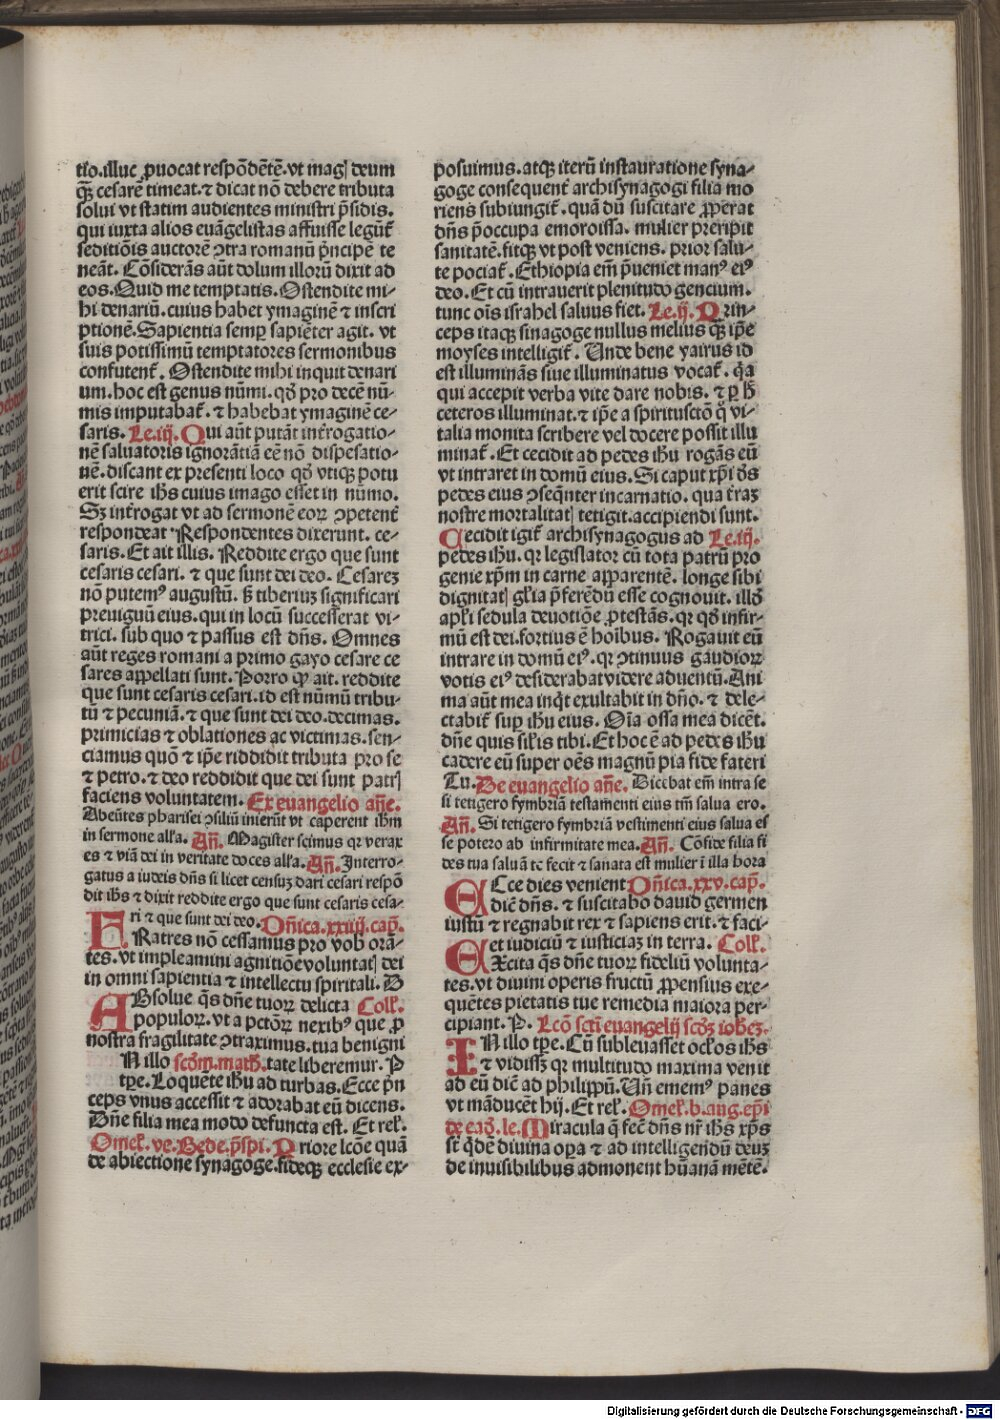 tio.illuc ꝓuocat respōdētē.vt magꝭ deum
qꝫ̄ cesarē timeat.⁊ dicat nō debere tributa
solui vt statim audientes ministri p̄sidis.
qui iuxta alios euāgelistas affuisse legūt᷑
seditiōis auctorē ꝯtra romanū pͥncipē te
neāt. Cōsiderās aūt dolum illorū dixit ad
eos. Quid me temptatis. Ostendite mi-
hi denariū. cuius habet ymaginē ⁊ inscri
ptionē. Sapientia semꝑ sapiēter agit. vt
suis potissimū temptatores sermonibus
confutent᷑. Ostendite mihi inquit denari
um. hoc est genus nūmi. qḋ pro decē nū-
mis imputabat᷑. ⁊ habebat ymaginē ce-
saris. Le.iij. Qui aūt putāt int᷑rogatio-
nē saluatoris ignorātiā eē nō dispēsatio-
nē. discant ex presenti loco qḋ vtiqꝫ potu
erit scire ihs cuius imago esset in nūmo.
Sꝫ int᷑rogat vt ad sermonē eoꝝ ꝯpetent᷑
respondeat Respondentes dixerunt. ce-
saris. Et ait illis. Reddite ergo que sunt
cesaris cesari. ⁊ que sunt dei deo. Cesareꝫ
nō putemꝰ augustū. ß tiberiuꝫ significari
preuiguū eius. qui in locū successerat vi-
trici. sub quo ⁊ passus est dn̄s. Omnes
aūt reges romani a primo gayo cesare ce
sares appellati sunt. Porro ꝙ ait. reddite
que sunt cesaris cesari. id est nūmū tribu-
tū ⁊ pecuniā. ⁊ que sunt dei deo. decimas.
primicias ⁊ oblationes ac victimas. sen-
ciamus quō ⁊ ip̄e riddidit tributa pro se
⁊ petro. ⁊ deo reddidit que dei sunt patrꝭ
faciens voluntatem. Ex euangelio an̄e.
Abeūtes pharisei ꝯsiliū inierūt vt caperent ihm̄
in sermone alľa. An̄. Magister scimus qr verax
es ⁊ viā dei in veritate doces alľa. An̄. Interro-
gatus a iudeis dn̄s si licet censuꝫ dari cesari respō
dit ihs ⁊ dixit reddite ergo que sunt cesaris cesa-
ri ⁊ que sunt dei deo. Dn̄ica.xxiiij.cap̄.
FRatres nō cessamus pro vob orā-
tes. vt impleamini agnitiōe voluntatꝭ dei
in omni sapientia ⁊ intellectu spiritali. D
ABsolue qs̄ dn̄e tuoꝝ delicta Colľ.
populoꝝ. vt a pctōꝝ nexibꝰ que ꝓ
nostra fragilitate ꝯtraximus. tua benigni
N illo scḋm. math̄. tate liberemur. P
tꝑe. Loquēte ihu ad turbas. Ecce pͥn
ceps vnus accessit ⁊ adorabat eū dicens.
Dn̄e filia mea modo defuncta est. Et relꝭ.
Omeľ. ve. Bede. p̄sp̄i. Priore lcōe quā
de abiectione synagoge. fideqꝫ ecclesie ex-
posuimus. atqꝫ iterū instauratione syna-
goge consequent᷑ archisynagogi filia mo
riens subiungit᷑. quā dū suscitare ꝓperat
dn̄s p̄occupa emoroissa. mulier preripit
sanitatē. fitqꝫ vt post veniens. prior salu-
te pociat᷑. Ethiopia em̄ p̄ueniet manꝰ eiꝰ
deo. Et cū intrauerit plenitudo gencium.
tunc oīs israhel saluus fiet. Le.ij. Prin-
ceps itaqꝫ sinagoge nullus melius qꝫ̄ ip̄e
moyses intelligit᷑. Unde bene yairus id
est illuminās siue illuminatus vocat᷑. qͣa
qui accepit verba vite dare nobis. ⁊ ꝑ h̄
ceteros illuminat. ⁊ ip̄e a spirituscto qͥ vi-
talia monita scribere vel docere possit illu
minat᷑. Et cecidit ad pedes ihu rogās eū
vt intraret in domū eius. Si caput xp̄i ds̄
pedes eius ꝯseqn̄ter incarnatio. qua t᷑raꝫ
nostre mortalitatꝭ tetigit. accipiendi sunt.
Cecidit igit᷑ archisynagogus ad Le.iij.
pedes ihu. qr legislator cū tota patrū pro
genie xp̄m in carne apparentē. longe sibi
dignitatꝭ gľia p̄ferēdū esse cognouit. illḋ
apľi sedula deuotiōe ꝓtestās. qr qḋ infir-
mū est dei. fortius ē hoībus. Rogauit eū
intrare in domū eiꝰ. qr ꝯtinuus gaudioꝝ
votis eiꝰ desiderabat videre aduentū. Ani
ma aūt mea inqͥt exultabit in dn̄o. ⁊ dele-
ctabit᷑ suꝑ ihu eius. Oīa ossa mea dicēt.
dn̄e quis siľis tibi. Et hoc ē ad pedes ihu
cadere eū super oēs magnū pia fide fateri
Tu. De euangelio an̄e. Dicebat em̄ intra se
si tetigero fymbriā testamenti eius tm̄ salua ero.
An̄. Si tetigero fymbriā vestimenti eius salua es
se potero ab infirmitate mea. An̄. Cōfide filia fi
des tua saluā te fecit ⁊ sanata est mulier ī illa hora
ECce dies venient Dn̄ica.xxv.cap̄.
dicē dn̄s. ⁊ suscitabo dauid germen
iustū ⁊ regnabit rex ⁊ sapiens erit. ⁊ faci-
et iudiciū ⁊ iusticiaꝫ in terra. Colľ.
EXcita qs̄ dn̄e tuoꝝ fideliū volunta-
tes. vt diuini operis fructū ꝓpensius exe-
quētes pietatis tue remedia maiora per-
cipiant. P. Lcō scti euangelij scḋꝫ ioheꝫ.
IN illo tꝑe. Cū subleuasset oclos ihs
⁊ vidissꝫ qr multitudo maxima venit
ad eū dicē ad philippū. Un̄ ememꝰ panes
vt māducēt hij. Et relꝭ. Omeľ. b. aug. ep̄i
de eaḋ. le. Miracula q̄ fecē dn̄s nr̄ ihs xp̄s
st̄ qͥdē diuina oꝑa ⁊ ad intelligendū deuꝫ
de inuisibilibus admonent hūanā mētē.
Digitalisierung gefördert durch die Deutsche Forschungsgemeinschaft - DFG